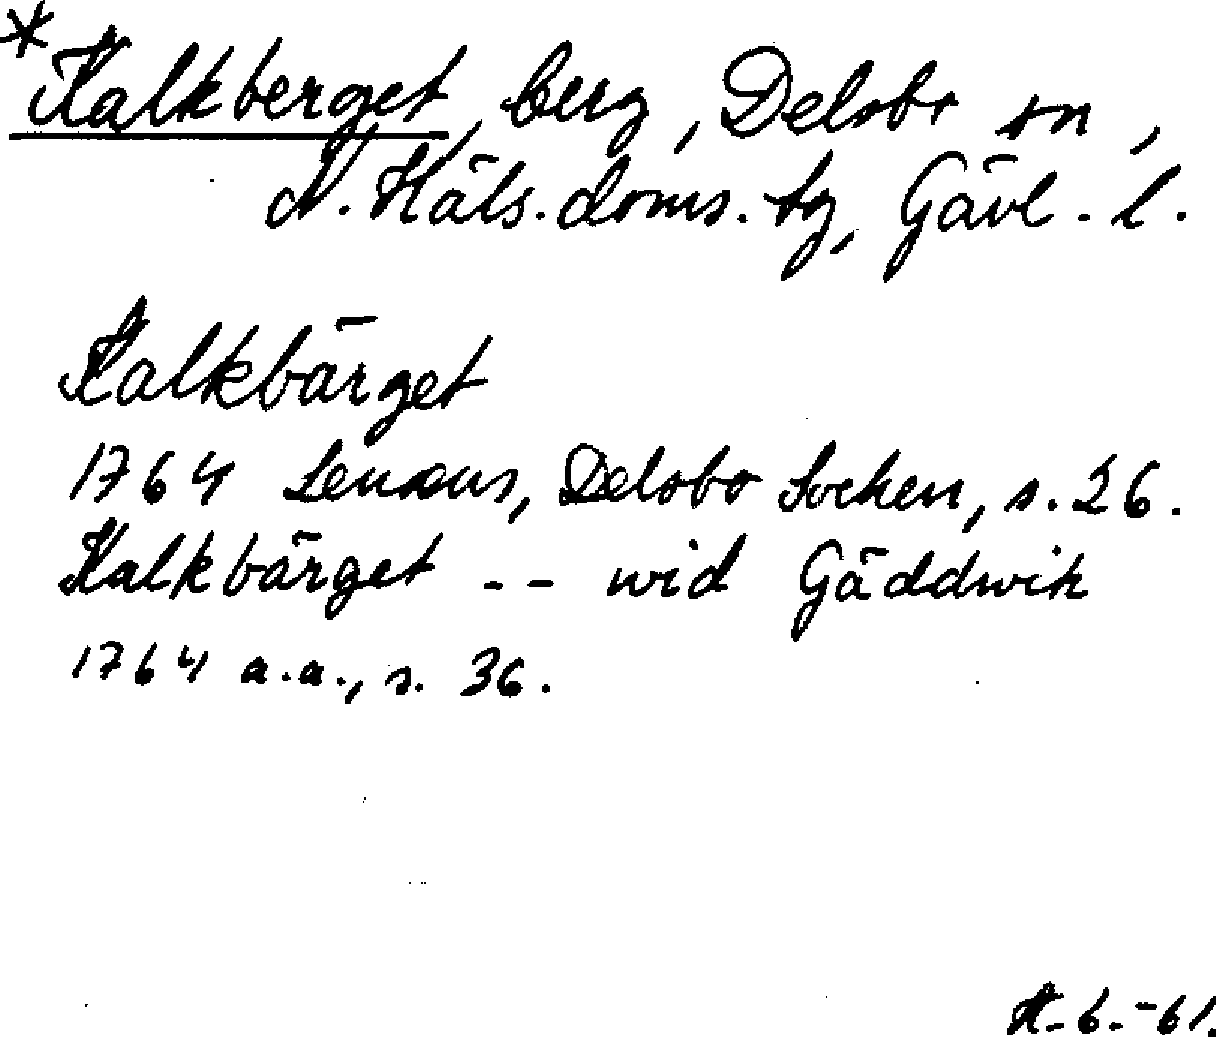 *Kalkberget, berg, Delsbo sn,
N. Häls. doms. tg, Gävl. l.
Kalkbärget
1764 Lenæus, Delsbo Socken, s. 26.
Kalkbärget -- wid Gäddwik
1764 a.a., s. 36.
6.-61.